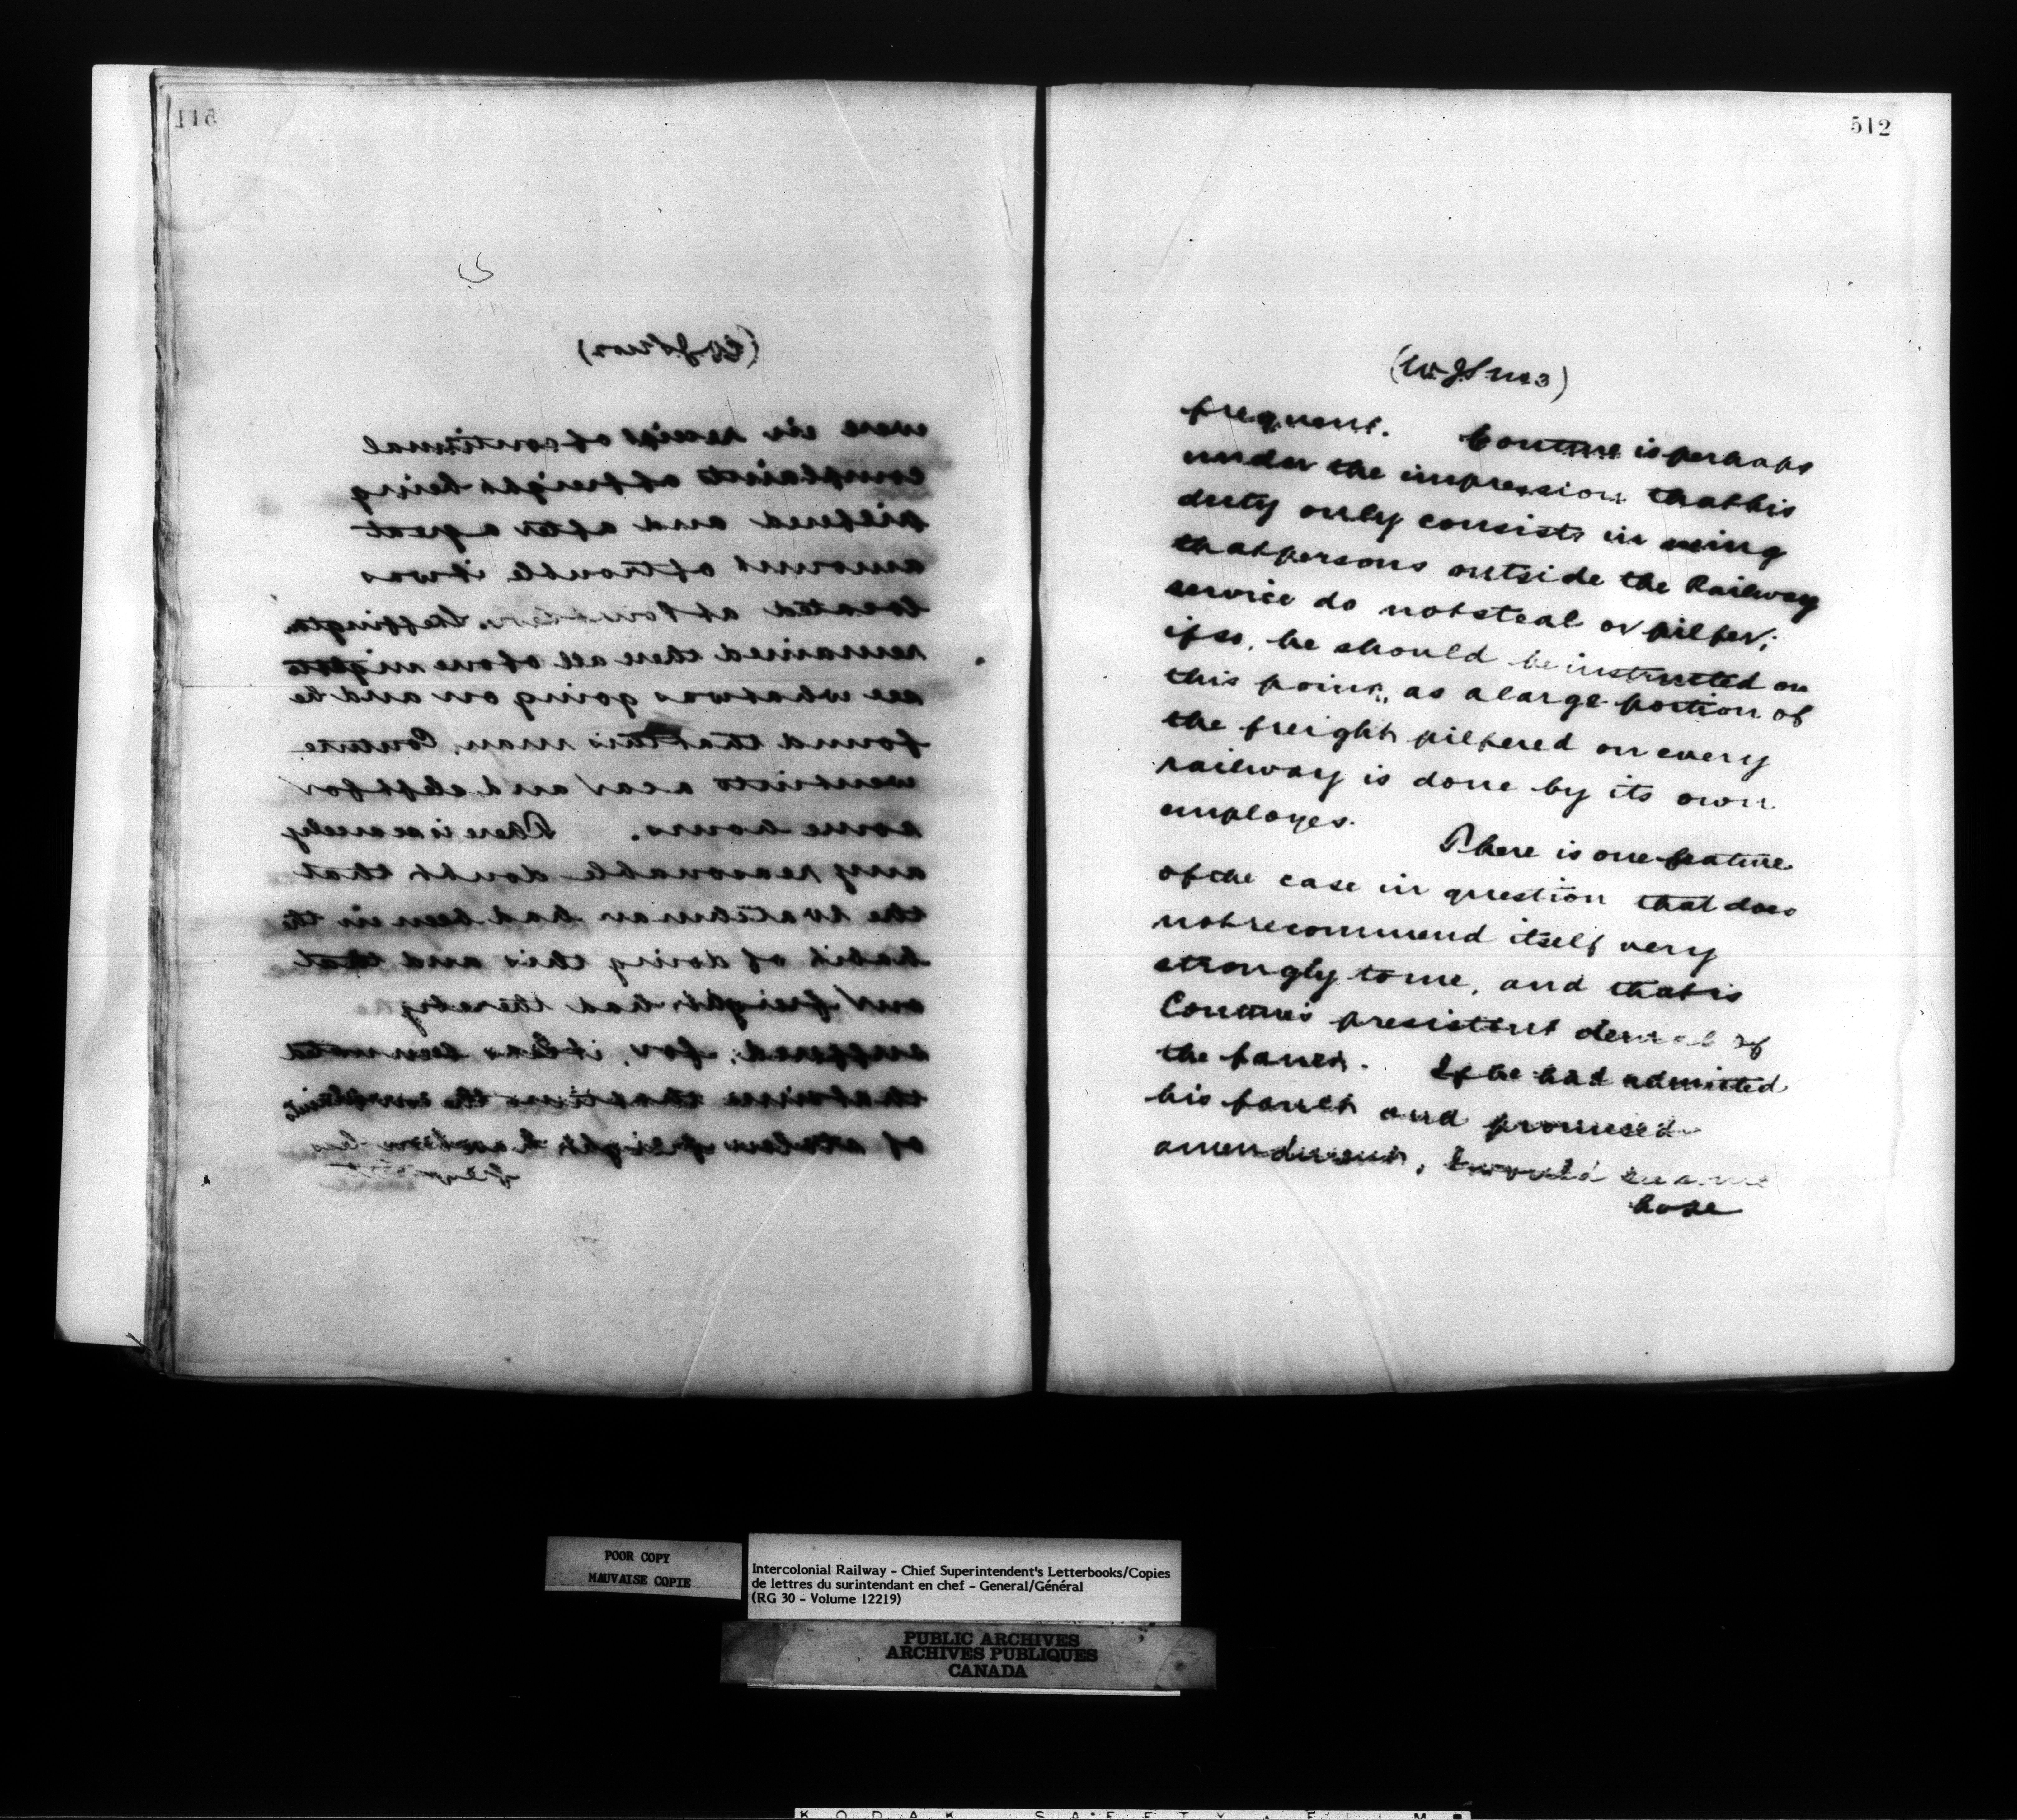 511
(W.J. No 2)
were in receipt of continual
complaints of freight being
pilfered and after a great
amount of trouble it was
located at
remained there all of one night to
see what was going on and he
found that this man, Couture
went into a car and slept for
some hours. There is scarcely
any reasonable doubt that
the watchman had been in the
habit of doing this and that
our freight had thereby
suffered, for, it has been noted
that since that time the complaints
of stolen freight have been less
frequent
512
frequent. Couture is perhaps
under the impression that his
duty only consists in seeing
that persons outside the Railway
service do not steal or pilfer;
if so, he should be instructed on
this point, as a large portion of
the freight pilfered on every
railway is done by its own
employes.
There is one feature
of the case in question that does
not recommend itself very
strongly to me, and that is
Couture's presistent denial of
the fault. If he had admitted
his fault and promised
amendment, I would have
hope
POOR COPY
MAUVAISE COPIE
Intercolonial Railway - Chief Superintendent's Letterbooks/Copies
de lettres du surintendant en chef - General/Général
(RG 30 - Volume 12219)
PUBLIC ARCHIVES
ARCHIVES PUBLIQUES
CANADA
KODAK SAFETY FILM